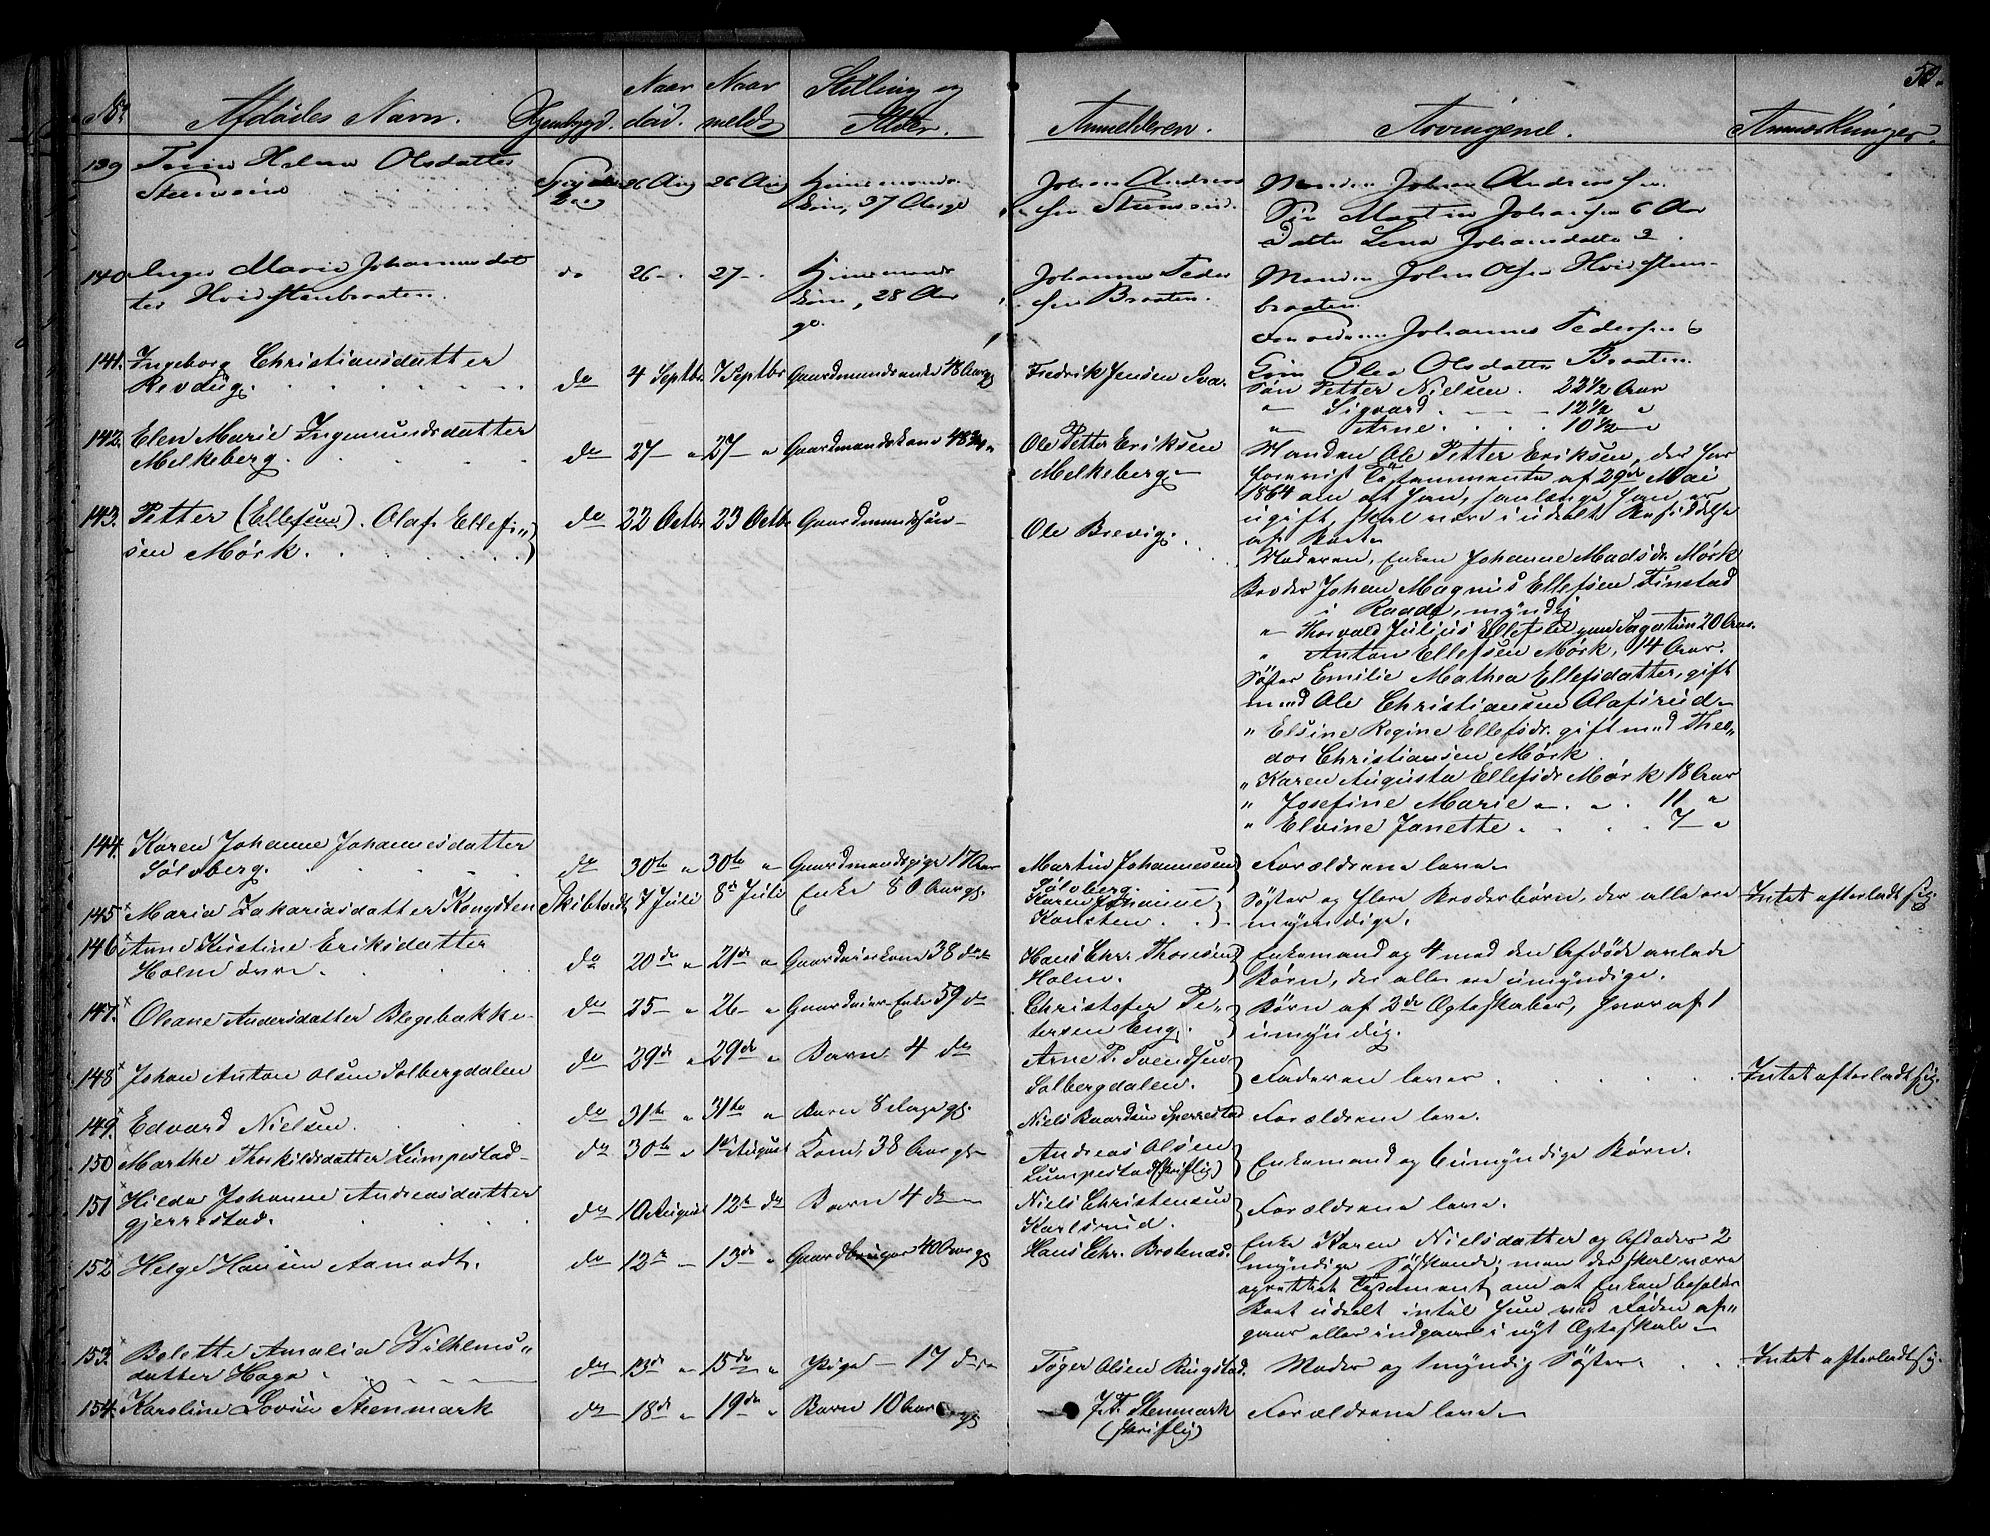 50.
No. Afdødes Navn. Naar død. Naar meldt Stilling og Alder. Anmelderen. Arvingerne. Anmærkninger.
139 Helene Olsdatter
26 Aug 26 Aug 37 Aar gl
Johan Andreas
Manden Johan Andreassen
Søn Martin Johansen 6 Aar
Datter Lena Johansdatter 2
140 Inger Marie Johannesdat
ter Hvidstenbraaten.
do 26 - 27 -
28 Aar
gl.
Johannes Peder
sen Braaten.
Manden Johan Olsen Hvidsten-
braaten.
Forældrene Johannes Pedersen &
Olea Olsdatter Braaten.
141. Ingeborg Christiansdatter
Revdug.
do 4 Septbr 7 Septbr Gaardmandsenke 48 Aar gl
Fredrik Jensen
Søn Petter Nielsen. 22½ Aar
" Sigvard. 12½ "
" Arne. 10½ "
142. Elen Marie Ingemundsdatter
Melkeberg.
do 27 - " 27 - " Gaardmandskone 48
Ole Petter Eriksen
Melkeberg
Manden Ole Petter Eriksen, der har
forevist Testamente af 29de Mai
1864 om at han, saalænge han er
ugift, skal være i udelt Besiddelse
af Boet
143. Petter (Ellefsen). Olaf Ellef-
sen Mørk.
do 22 Octbr 23 Octbr Gaardmandssøn -
Ole Brevig.
Moderen, Enken Johanne Madsdr Mørk
Broder Johan Magnus Ellefsen Finstad
i Raade, myndig
" Thorvald Julius Ellefsen 20 Aar.
" Anton Ellefsen Mørk, 14 Aar.
Søster Emilie Mathea Ellefsdatter, gift
med Ole Christiansen Olafsrud
" Elsine Regine Ellefsdr. gift med Theo-
dor Christiansen Mørk
" Karen Augusta Ellefsdr Mørk 18 Aar
" Josefine Marie " . " . 11 "
" Elvine Janette . . . 7 "
144. Karen Johanne Johannesdatter
Sølvberg.
do 30te " 30te " Gaardmandspige 17 Aar
Martin Johannesen
Sølvberg.
Forældrene leve
145 Maria Zakariasdatter Kongsten
Skibtvedt 7 Juli 8de Juli Enke 80 Aar gl.
Karen Johanne
Konsten
Søster og flere Broderbørn, der alle ere
myndige.
Intet efterladt sig.
146 Anne Kirstine Eriksdatter
Holm øvre.
do 20de " 21de " Gaardeierskone 38 do
Hans Chr. Thoresen
Holm.
Enkemand og 4 med den Afdøde avlede
Børn, der alle ere umyndige.
147. Oleane Andersdatter Blegebakke
do 25 - " 26 - " Gaardeier-Enke 59 do
Christofer Pe-
tersen Eng.
Børn af 2de Ægteskaber, hvoraf 1
umyndig.
148 Johan Anton Olsen Solbergdalen
do 29de " 29de " Barn 4 do
Arne P. Svendsen
Solbergdalen.
Faderen lever
Intet efterladt sig.
149. Edvard Nielsen
do 31te " 31te " Barn 8 dage gl.
Niels Baardsen Sperrestad
Forældrene leve.
150 Marthe Thorkildsdatter Lumpestad
do 30te " 1ste August Kone, 38 Aar gl
Andreas Olsen
Lumpestad (skriftlig)
Enkemand og 6 umyndige Børn.
151 Hilda Johanne Andreasdatter
Gjerrestad.
do 10 August 12te do Barn 4 do
Niels Christensen
Karlsrud.
Forældrene leve.
152 Helge Hansen Aamodt.
do 12te - 13de " Gaardbruger 40 Aar gl
Hans Chr. Brotenæs.
Enke Karen Nielsdatter og Afdødes 2
myndige Søskende; men der skal være
oprettet Testament om at Enken beholder
Boet udelt indtil hun ved Døden af-
gaar eller indgaar i nyt Ægteskab
153. Bolette Amalia Wilhelms-
datter Haga.
do 13de " 15de " Pige - 17 do
Tøger Olsen Ringstad.
Moder og 1 myndig Søster.
Intet efterladt sig.
154. Karoline Lovise Stenmark
do 18de " 19de " Barn 10 Aar gl
J. F. Stenmark
(skriftlig)
Forældrene leve